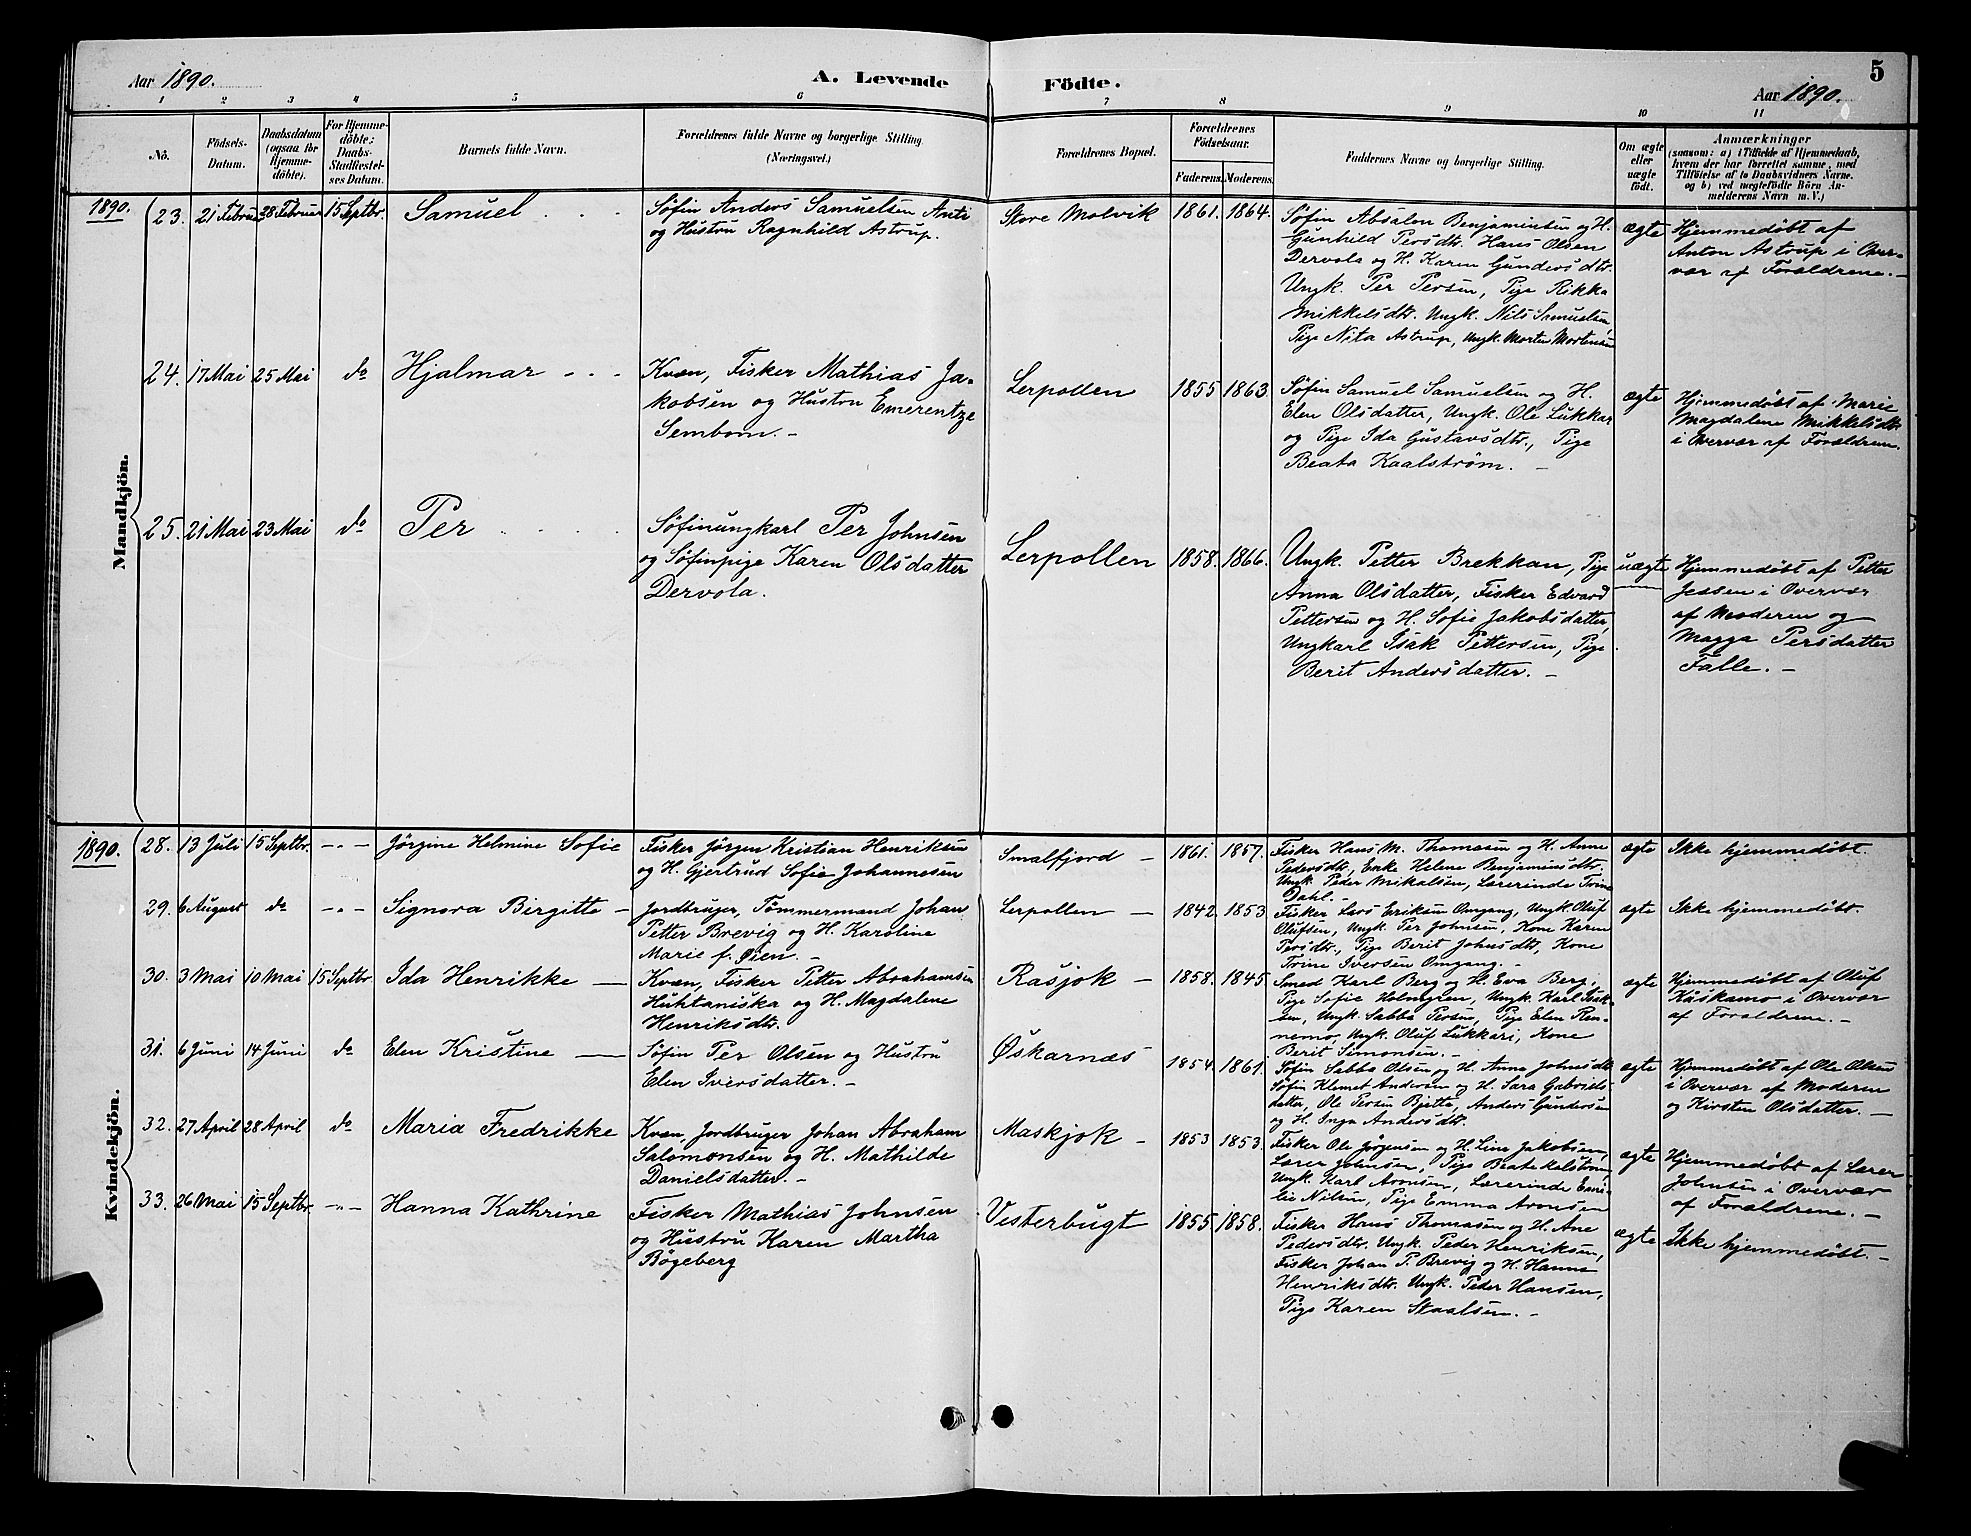 Aar 1890.
A. Levende Födte.
Aar 1890.
5
1 2 3 4 5 6 7 8 9 10 11
No.
Födsels-
Datum.
Daabsdatum
(ogsaa for
Hjemme-
döbte).
For Hjemme-
döbte:
Daabs-
Stadfæstel-
ses Datum.
Barnets fulde Navn.
Forældrenes fulde Navne og borgerlige Stilling
(Næringsvei.)
Forældrenes Bopæl.
Forældrenes
Födselsaar.
Faderens. Moderens.
Faddernes Navne og borgerlige Stilling.
Om ægte
eller
uægte
födt.
Anmærkninger
(saasom: a) i Tilfælde af Hjemmedaab,
hvem der har forrettet samme, med
Tilföielse af to Daabsvidners Navne.
og b) ved uægtefödte Börn An-
melderens Navn m. V.)
Mandkjön.
1890.
23. 21 Februar 28 Februar 15 Septbr.
Samuel
Søfin Anders Samuelsen Anti
og Hustru Ragnhild Astrup.
Store Molvik
1861. 1864.
Søfin Absalon Benjaminsen og H.
Gunhild Persdtr. Hans Olsen
Dervola og H. Karen Gundersdtr.
Ungk. Per Persen, Pige Rikka
Mikkelsdtr. Ungk. Nils Samuelsen,
Pige Nita Astrup, Ungk. Morten Mortensen
ægte
Hjemmedøbt af
Anton Astrup i Over-
vær af Forældrene. -
24. 17 Mai 25 Mai do
Hjalmar
Kvæn, Fisker Mathias Ja-
kobsen og Hustru Emerentze
Sembom. -
Lerpollen
1855 1863
Søfin Samuel Samuelsen og H.
Elen Olsdatter, Ungk. Ole Lukkar
og Pige Ida Gustavsdtr., Pige
Beata Kaalstrøm. -
ægte
Hjemmedøbt af Marie
Magdalene Mikkelsdtr.
i Overvær af Forældrene.
25. 21 Mai 23 Mai do
Per
Søfinungkarl Per Johnsen
og Søfinpige Karen Olsdatter
Dervola.
Lerpollen
1858. 1866.
Ungk. Petter Brekkan, Pige
Anna Olsdatter, Fisker Edvard
Pettersen og H. Sofie Jakobsdatter,
Ungkarl Isak Pettersen, Pige
Berit Andersdatter. -
uægte
Hjemmedøbt af Petter
Jessen i Overvær
af Moderen og
Magga Persdatter
Falle. -
Kvindekjön.
1890.
28. 13 Juli 15 Septbr. -"-
Jörgine Helmine Sofie
Fisker Jörgen Kristian Henriksen
og H. Gjertrud Sofie Johannesen
Smalfjord -
1861. 1857.
Fisker Hans M. Thomasen og H. Anne
Pedersdtr., Enke Helene Benjaminsdtr.
Ungk. Peder Mikalsen, Lærerinde Trine
Dahl. -
ægte
Ikke hjemmedøbt.
29. 6 August do -"-
Signora Birgitte -
Jordbruger, Tömmermand Johan
Petter Brevig og H. Karoline
Marie f. Øien. -
Lerpollen -
1842. 1853
Fisker Lars Eriksen Omgang, Ungk. Oluf
Olufsen, Ungk. Per Johnsen, Kone Karen
Persdtr., Pige Berit Johnsdtr., Kone
Trine Iversen Omgang. -
ægte
Ikke hjemmedøbt.
30. 3 Mai 10 Mai 15 Septbr.
Ida Henrikke -
Kvæn, Fisker Petter Abrahamsen
Huhtaniska og H. Magdalene
Henriksdtr.
Rasjok -
1858. 1845
Smed Karl Berg og H. Eva Berg,
Pige Sofie Holmgren, Ungk. Karl Isak-
sen, Ungk. Sabba Persen, Pige Elen Ren-
nemo, Ungk. Oluf Lukkari, Kone
Berit Simonsen. -
ægte
Hjemmedøbt af Oluf
Kuskamo i Overvær
af Forældrene. -
31. 6 Juni 14 Juni do
Elen Kristine -
Søfin Per Olsen og Hustru
Elen Iversdatter. -
Øskarnæs
1854. 1861.
Søfin Sabba Olsen og H. Anna Johnsdtr.
Søfin Klemet Andersen og H. Sara Gabriels-
datter, Ole Persen Bjetto, Anders Gundersen
og H. Inga Andersdtr.
ægte
Hjemmedøbt af Ole Olsen
i Overvær af Moderen
og Kirsten Olsdatter. -
32. 27 April 28 April do
Maria Fredrikke
Kvæn, Jordbruger Johan Abraham
Salomonsen og H. Mathilde
Danielsdatter. -
Maskjok -
1853 1853
Fisker Ole Jörgensen og H. Lina Jakobsen,
Lærer Johnsen, Pige Beate
Ungk. Karl Aronsen, Lærerinde Emi-
lie Nilsen, Pige Emma Aronsen
ægte
Hjemmedøbt af Lærer
Johnsen i Overvær
af Forældrene. -
33. 26 Mai 15 Septbr. -"-
Hanna Kathrine
Fisker Mathias Johnsen
og Hustru Karen Martha
Bögeberg
Vesterbugt
1855. 1858.
Fisker Hans Thomasen og H. Ane
Pedersdtr. Ungk. Peder Henriksen,
Fisker Johan P. Brevig og H. Hanna
Henriksdtr. Ungk. Peder Hansen,
Pige Karen Staalsen. -
ægte
Ikke hjemmedøbt. -